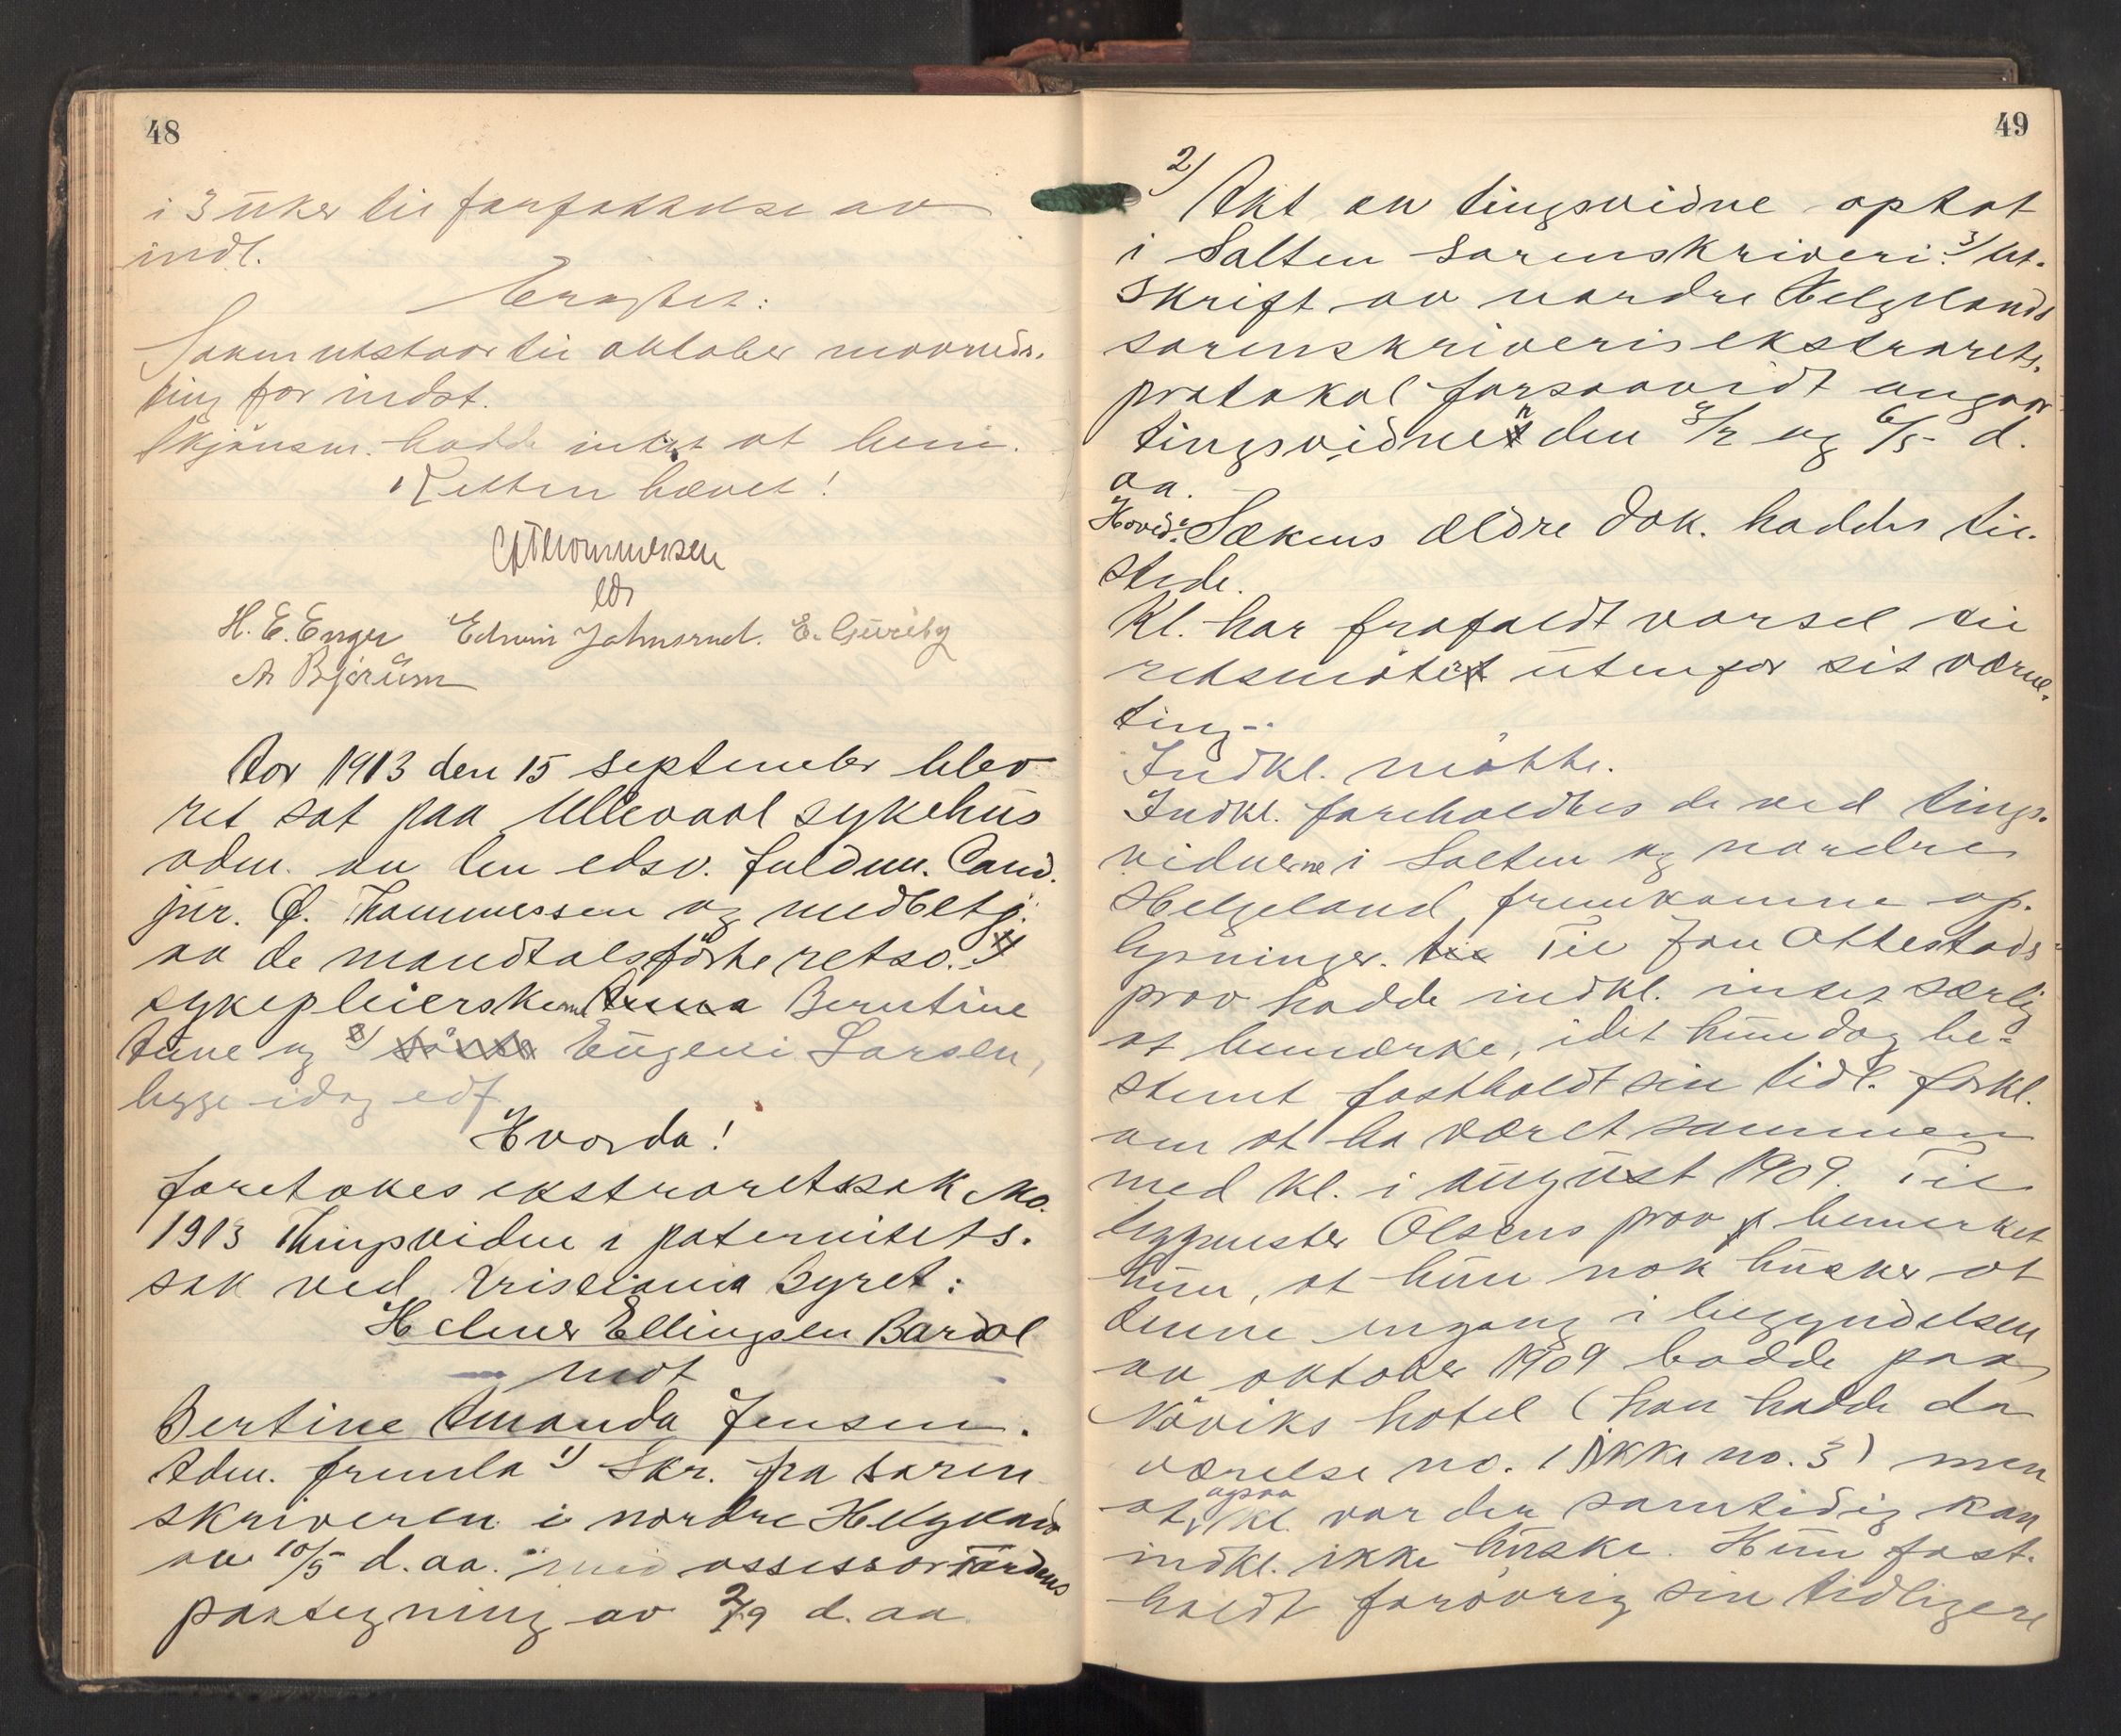 48
i 3 uker til forfattelse av
indl.
Eragtet:
Saken utstaar til oktober maaneds-
ting for indst.
Skjönsm. hadde intet at bem.
Retten hævet!
C Thommessen
eds
H. E. Enger Edwin Johnsrud. E. Gureby
A Bjerum
Aar 1913 den 15 september blev
ret sat paa Ullevaal sykehus
adm. av den edsv. fuldm. Cand.
jur. Ø. Thommessen og medbetj.
av de mandtalsförte retsv. 1)
sykepleierskerne Anna Berntine
Aune og 2) Eugeni Larsen,
begge idag edf.
Hvorda!
foretokes ekstraretssak No.
1913 Thingsvidne i paternitets-
sak ved Kristiania byret:
Helmer Ellingsen Bardal
mot
Bertine Amanda Jensen.
Adm. fremla 1) Skr. fra soren
skriveren i nordre Helgeland
av 10/5 d. aa. med assessor Tardens
paategning av 2/9 d. aa
49
2) Akt av tingsvidne optat
i Salten sorenskriveri. 3) Ut-
skrift av nordre Helgelands
sorenskriveris ekstrarets-
protokol forsaavidt angaar
tingsvidnen den 3/2 og 6/5 d.
aa.
Hoved: Sakens ældre dok. haddes til-
stede.
Kl. har frafaldt varsel til
retsmöter utenfor sit værne-
ting.
Indkl. mötte.
Indkl. foreholdtes de ved tings-
vidnerne i Salten og nordre
Helgeland fremkomne op-
lysninger. til Til Jon Ottestads
prov hadde indkl. intet særlig
at bemærke, idet hun dog be-
stemt fastholdt sin tidl. forkl.
om at ha været sammen
med kl. i august 1909. Til
byggmester Olsens prov bemerket
hun, at hun nok husker at
denne engang i begyndelsen
av oktober 1909 bodde paa
Növiks hotel (han hadde da
værelse no. 1 ikke no. 3) men
at ogsaa kl. var der samtidig kan
indkl. ikke huske. Hun fast-
holdt forövrig sin tidligere